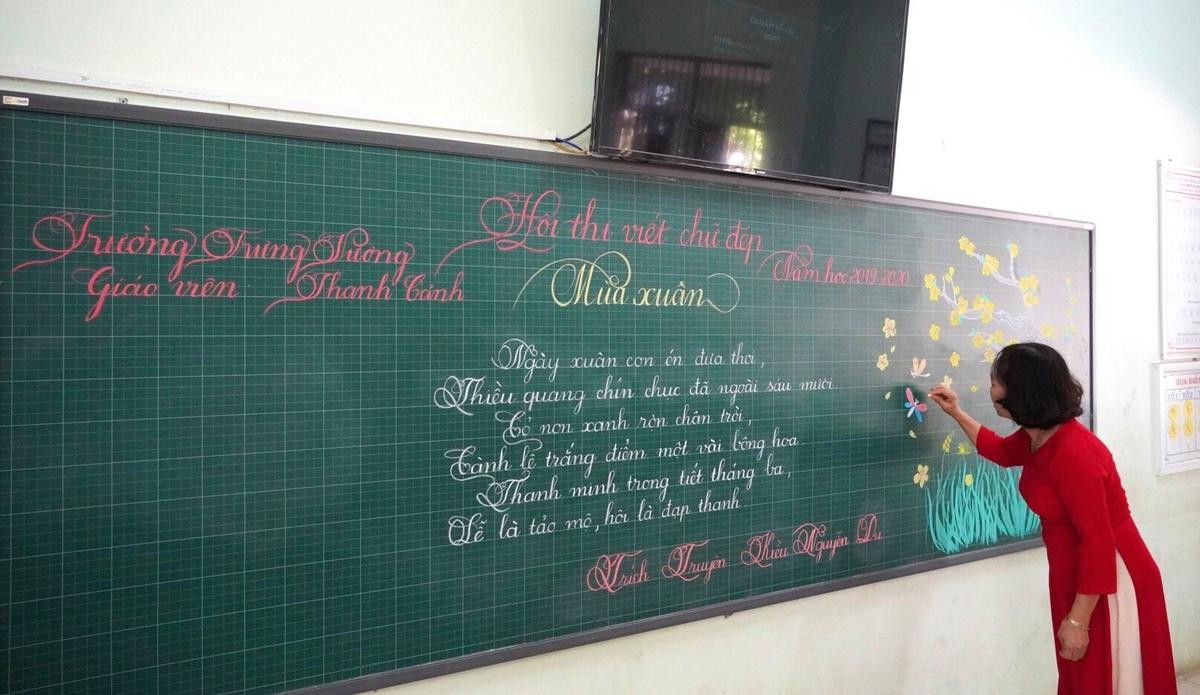 Trường Trưng Vương
Giáo viên Thanh Cảnh
Hội thi viết chữ đẹp
Năm học 2019-2020
Mùa xuân
Ngày xuân con én đưa thoi,
Thiều quang chín chục đã ngoài sáu mươi.
Cỏ non xanh rờn chân trời,
Cành lê trắng điểm một vài bông hoa.
Thanh minh trong tiết tháng ba,
Lễ là tảo mộ, hội là đạp thanh.
Trích Truyện Kiều Nguyễn Du